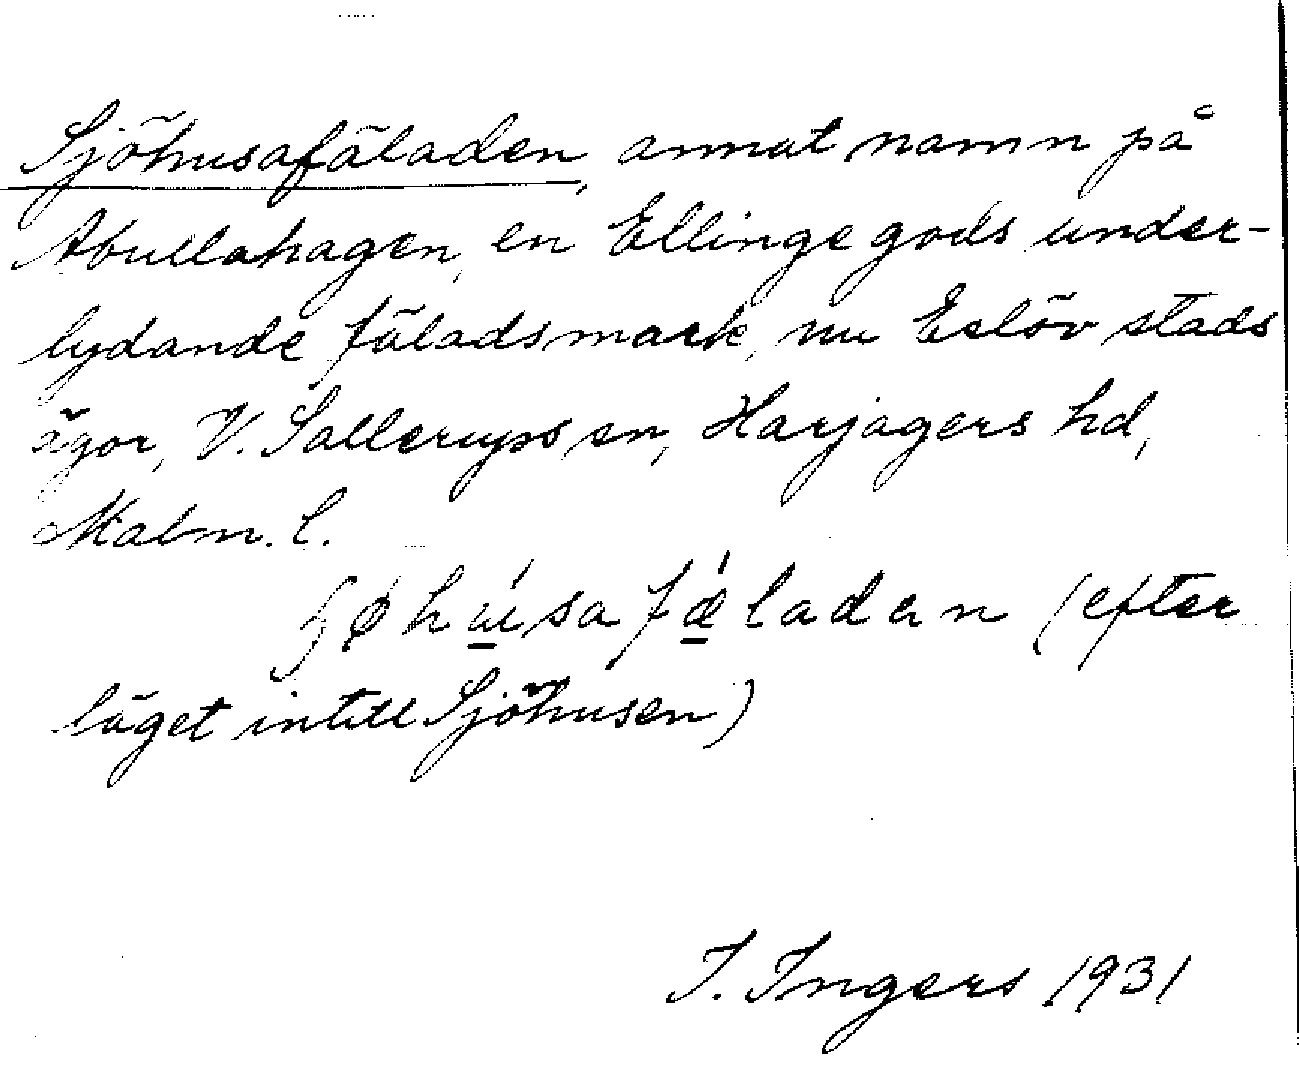 Sjöhusafäladen, annat namn på
Abullahagen, en Ellinge gods under-
lydande fäladsmark, nu Eslöv stads
ägor, V. Sallerups sn, Harjagers hd,
Malm. l.
ʃøhúsafǽladan (efter
läget intill Sjöhusen)
I. Ingers 1931